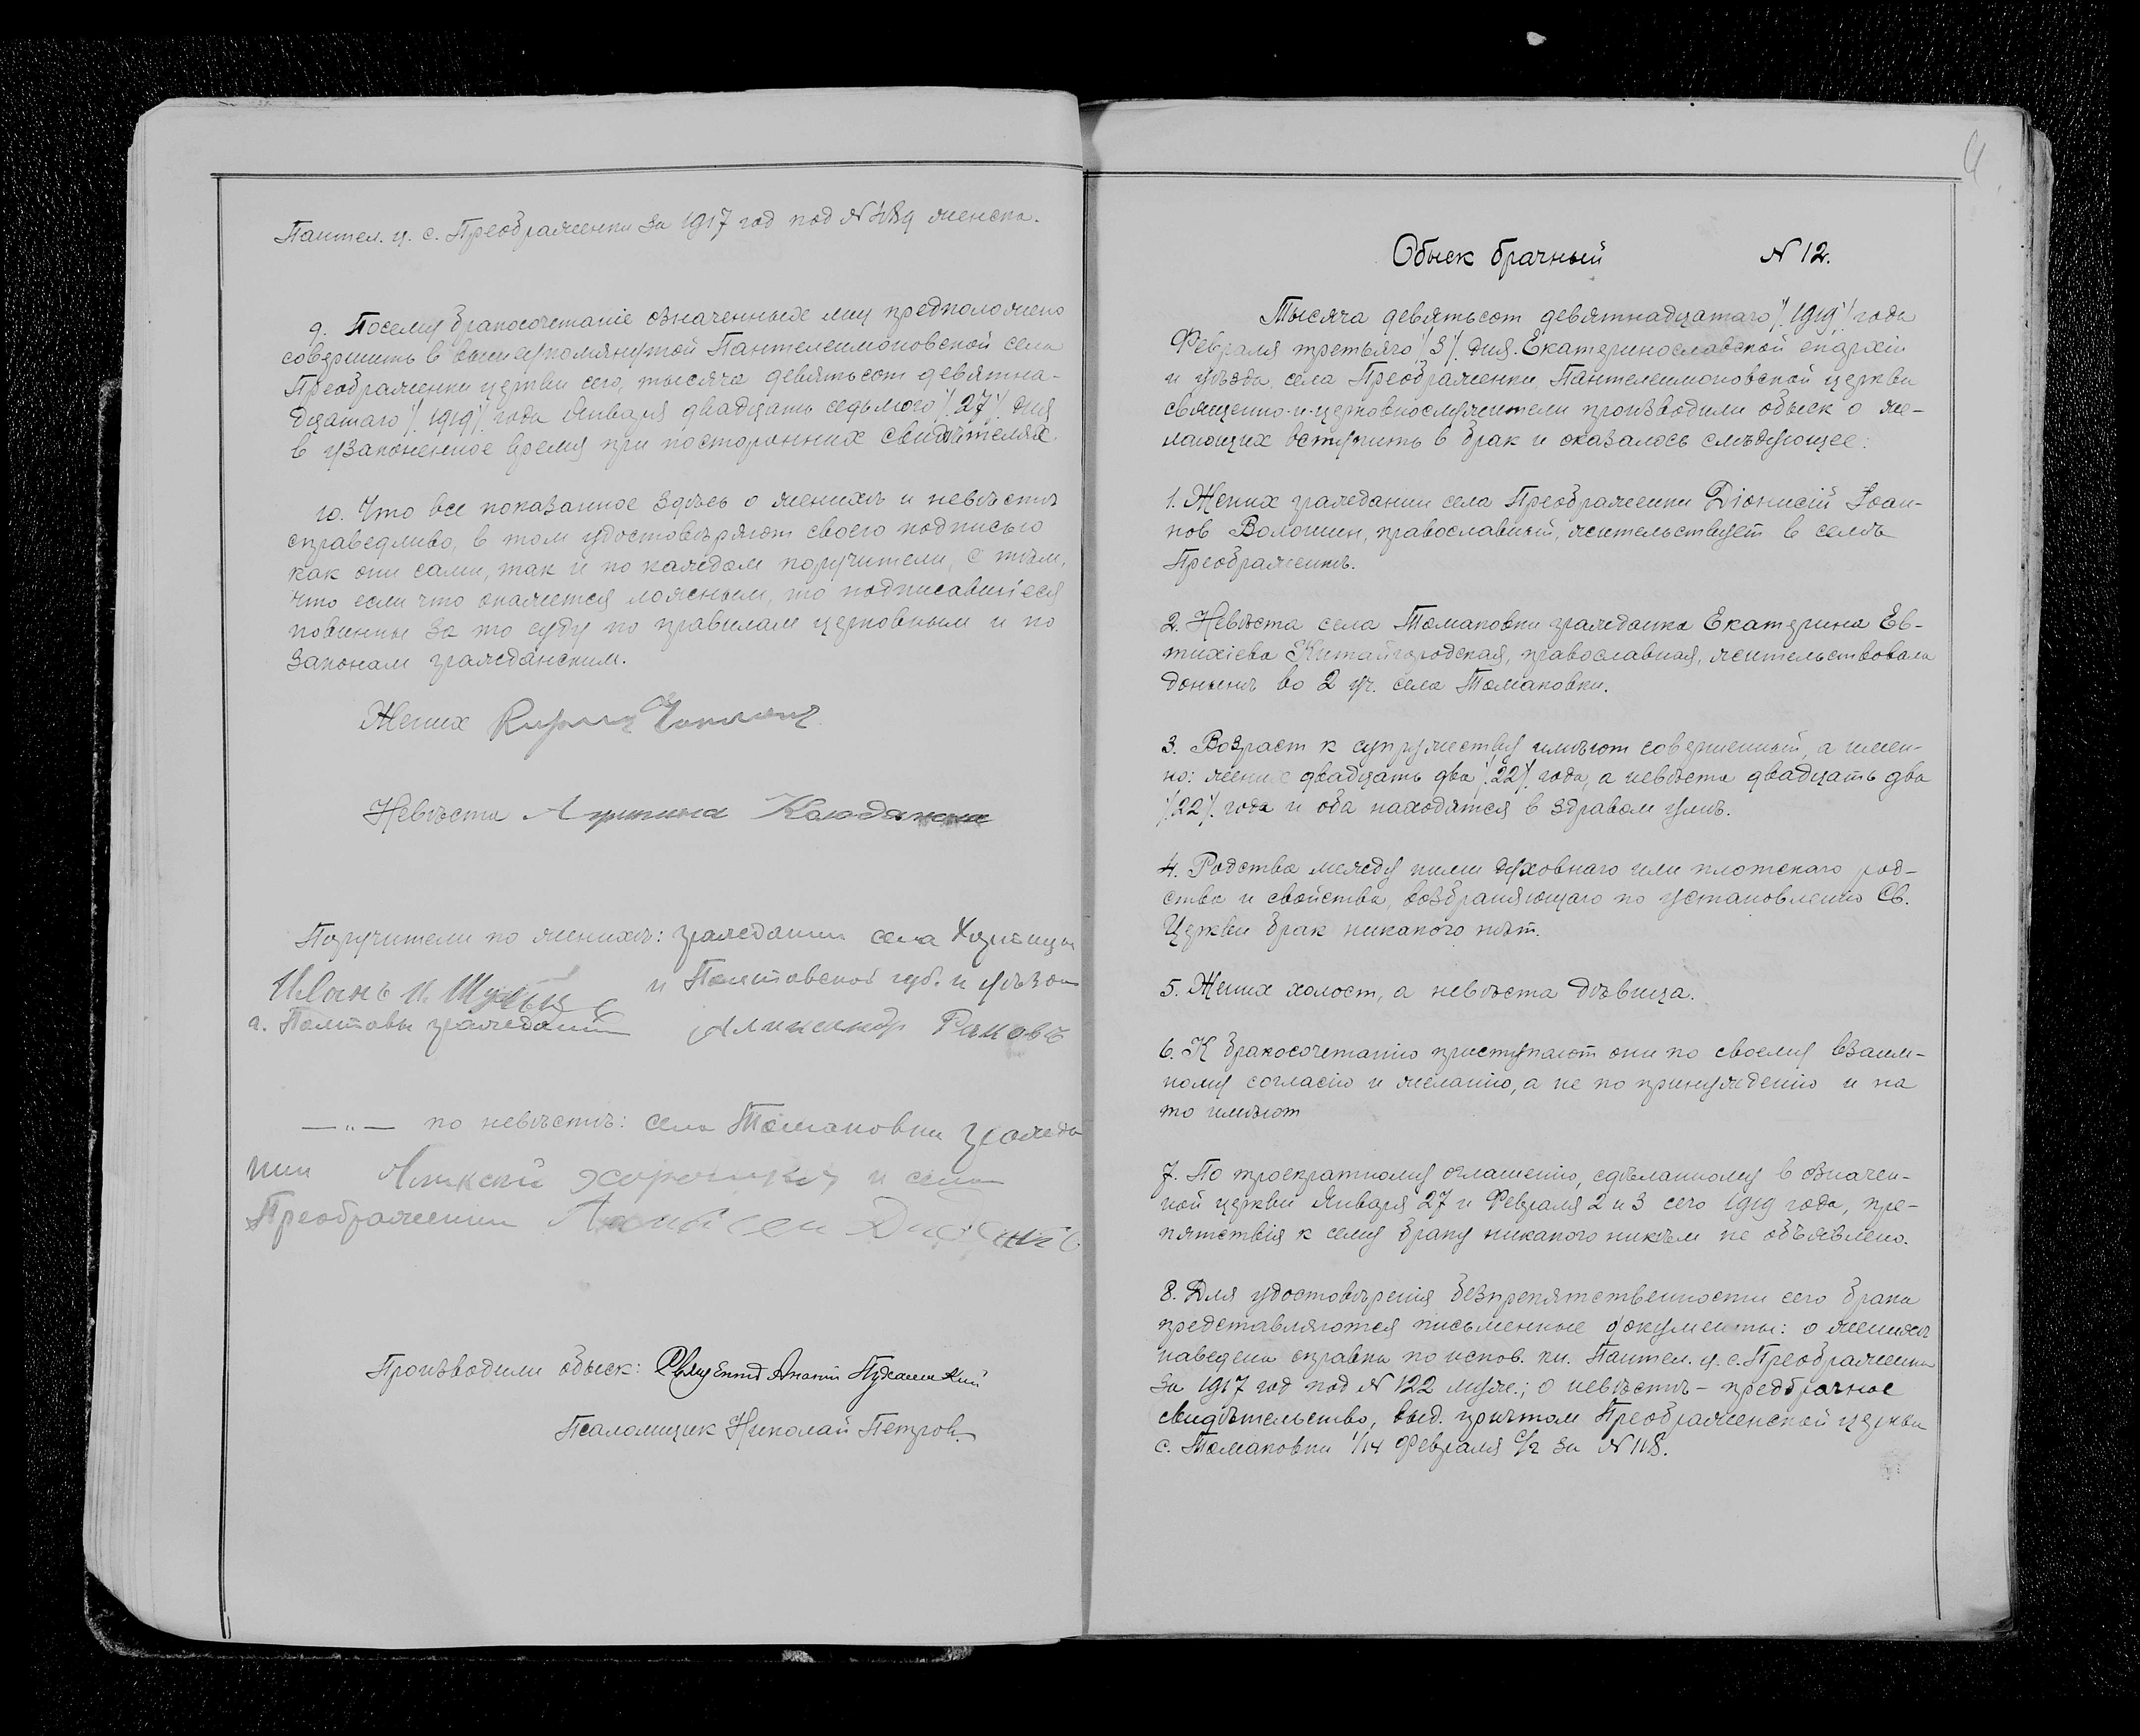 Пантел. ц. с. Преображенки за 1917 год под № 489 женска.
9. Посему бракосочетаніе означенных лиц предположено
совершить в вышеупомянутой Пантелеимоновской села
Преображенки церкви сего, тысяча девятьсот девятна-
дцатаго /. 1919 /. года Января двадцать седьмого /. 27 /. дня
в узаконенное время при посторонних свидѣтелях.
10. Что все показанное здѣсь о женихѣ и невѣстѣ
справедливо, в том удостовѣряют своего подписью
как они сами, так и по каждом поручители, с тѣм,
что если что окажется ложным, то подписавшіеся
повинны за то суду по правилам церковным и по
законам гражданским.
Жених
Невѣста
Поручители по женихѣ: гражданин села
Иванъ и Полтавской губ. и уѣзда
г. Полтавы гражданин Александр Раковъ
—„— по невѣстѣ: села Томаковки гражда
нин и села
Преображенки
Производили обыск:
Псаломщик Николай Петров.
Обыск брачный № 12.
Тысяча девятьсот девятнадцатаго /. 1919 /. года
Февраля третьяго /. 3 /. дня. Екатеринославской епархіи
и уѣзда, села Преображенки, Пантелеимоновской церкви
священно-и-церковнослужители производили обыск о же-
лающих вступить в брак и оказалось слѣдующее:
1. Жених гражданин села Преображенки Діонисій Іоан-
нов Волошин, православный, жительствует в селѣ
Преображенкѣ.
2. Невѣста села Томаковки гражданка Екатерина Ев-
тихіева Китайгородская, православная, жительствовала
донынѣ во 2 уч. села Томаковки.
3. Возраст к супружеству имѣют совершенный, а имен-
но: жених двадцать два /. 22 /. года, а невѣста двадцать два
/. 22 /. года и оба находятся в здравом умѣ.
4. Родства между ними духовнаго или плотскаго род-
ства и свойства, возбраняющаго по установленію Св.
Церкви брак никакого нѣт.
5. Жених холост, а невѣста дѣвица.
6. К бракосочетанію приступают они по своему взаим-
ному согласію и желанію, а не по принужденію и на
то имѣют
7. По троекратному оглашенію, сдѣланному в означен-
ной церкви Января 27 и Февраля 2 и 3 сего 1919 года, пре-
пятствія к сему браку никакого никѣм не объявлено.
8. Для удостовѣренія безпрепятственности сего брака
представляются письменные документы: о женихѣ
наведена справка по испов. кн. Пантел. ц. с. Преображенки
за 1917 год под № 122 муж.; о невѣстѣ – предбрачное
свидѣтельство, выд. причтом Преображенской церкви
с. Томаковки 1/14 Февраля с/г за № 118.